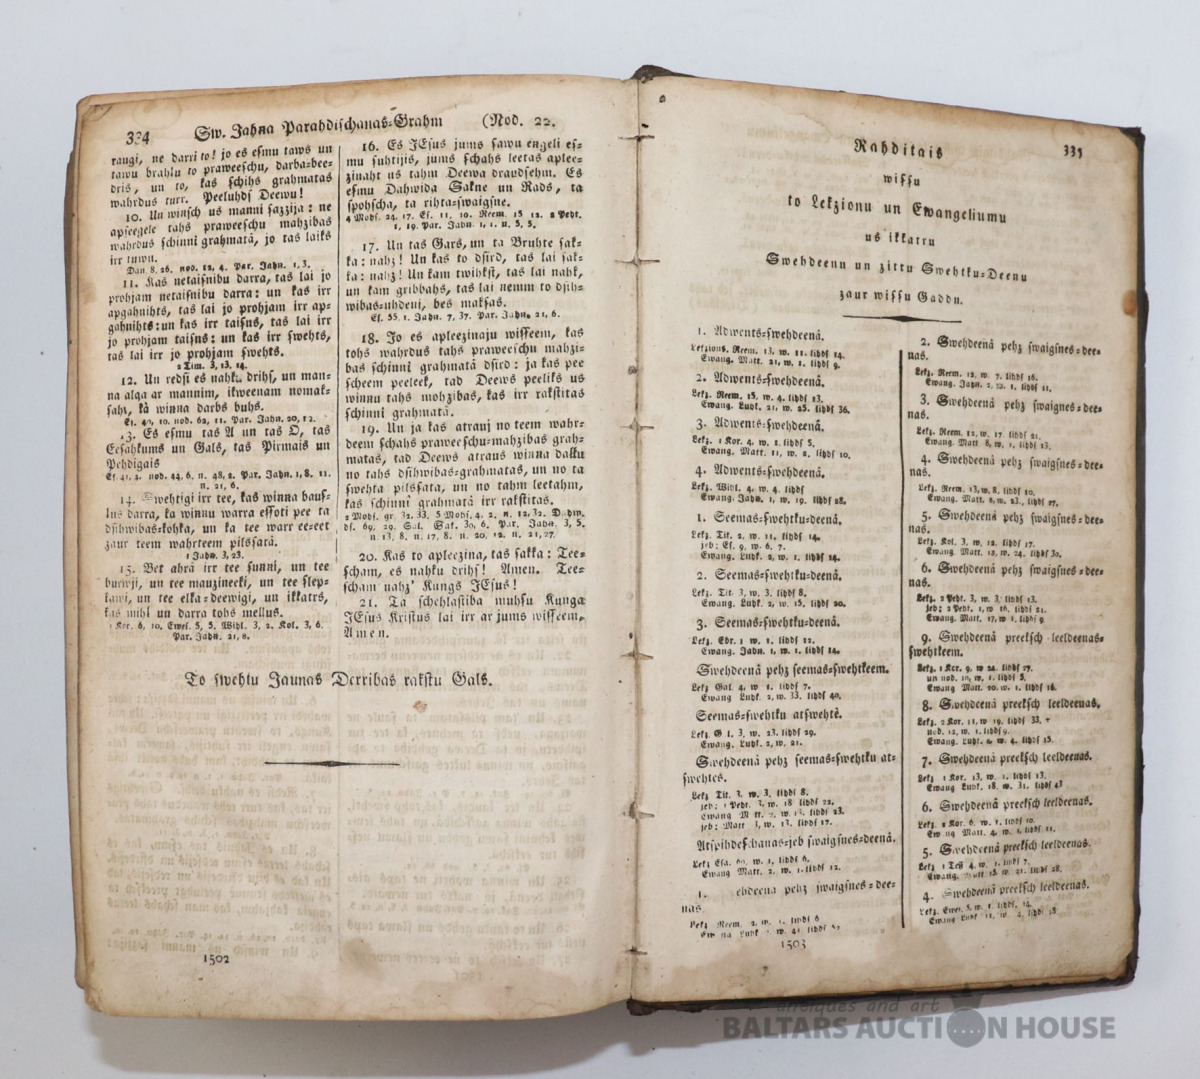 334 Sw. Jahna Parahdischanas-Grahm (Nod. 22.
raugi, ne darri to! jo es esmu taws un
tawu brahlu to praweeschu, darba-bee-
dris, un to, kas schihs grahmatas
wahrdus turr. Peeluhds Deewu!
10. Un winsch us manni sazzija: ne
apseegele tahs praweeschu mahzibas
wahrdus schinni grahmatâ, jo tas laiks
irr tuwu.
Dan 8, 26. nod. 12, 4. Par. Jahn. 1, 3.
11. Kas netaisnibu darra, tas lai jo
prohjam netaisnibu darra: un kas irr
apgahnihts, tas lai jo prohjam irr ap-
gahnihts: un kas irr taisns, tas lai irr
jo prohjam taisns: un kas irr swehts,
tas lai irr jo prohjam swehts.
2 Tim. 3, 13. 14.
12. Un redsi es nahku drihs, un man-
na alga ar mannim, ikweenam nomak-
saht, kà winna darbs buhs.
Es. 40, 10. nod. 62, 11. Par. Jahn. 20, 12.
13. Es esmu tas A un tas O, tas
Eesahkums un Gals, tas Pirmais un
Pehdigais
Es 41, 4. nod. 44, 6. n. 48, 2. Par. Jahn. 1, 8. 11.
n. 21, 6.
14. Swehtigi irr tee, kas winna baus-
lus darra, ka winnu warra essoti pee ta
dsihwibas-kohka, un ka tee warr ee-eet
zaur teem wahrteem pilssatâ.
1 Jahn. 3, 23.
15. Bet ahrâ irr tee sunni, un tee
burwji, un tee mauzineeki, un tee slep-
kawi, un tee elka-deewigi, un ikkatrs,
kas mihl un darra tohs mellus.
1 Kor. 6, 10. Ewes. 5, 5. Wihl. 3, 2. Kol. 3, 6.
Par. Jahn. 21, 8.
16. Es JEsus jums sawu engeli es-
mu suhtijis, jums schahs leetas aplee-
zinaht us tahm Deewa draudsehm. Es
esmu Dahwida Sakne un Rads, ta
spohscha, ta rihta-swaigsne.
4 Mohs. 24, 17. Es. 11, 10. Reem. 15 12. 2 Peht.
1, 19. Par. Jahn. 1, 1. n. 5, 5.
17. Un tas Gars, un ta Bruhte sak-
ka: nahz! Un kas to dsird, tas lai sak-
ka: nahz! Un kam twihkst, tas lai nahk,
un kam gribbahs, tas lai nemm to dsih-
wibas-uhdeni, bes maksas.
Es. 55. 1. Jahn. 7, 37. Par. Jahn. 21, 6.
18. Jo es apleezinaju wisseem, kas
tohs wahrdus tahs praweeschu mahzi-
bas schinni grahmatâ dsird: ja kas pee
scheem peeleek, tad Deews peeliks us
winnu tahs mohzibas, kas irr rakstitas
schinni grahmatâ.
19. Un ja kas atrauj no teem wahr-
deem schahs praweeschu-mahzibas grah-
matas, tad Deews atraus winna dallu
no tahs dsihwibas-grahmatas, un no ta
swehta pilssata, un no tahm leetahm,
kas schinni grahmatâ irr rakstitas.
2 Mohs. gr. 32, 33. 5 Mohs. 4, 2. n. 12, 32. Dahw.
ds. 69, 29. Sal. Sak. 30, 6. Par. Jahn. 3, 5.
n. 13, 8. n. 17, 8. n. 20, 12. n. 21, 27.
20. Kas to apleezina, tas sakka: Tee-
scham, es nahku drihs! Amen. Tee-
scham nahz' Kungs JEsus!
21. Ta schehlastiba muhsu Kunga
JEsus Kristus lai irr ar jums wisseem,
Amen.
To swehtu Jaunas Derribas rakstu Gals.
1502
Rahditais 335
wissu
to Lekzionu un Ewangeliumu
us ikkatru
Swehdeenu un zittu Swehtku-Deenu
zaur wissu Gaddu.
1. Adwents-swehdeenâ.
Lekzions. Reem. 13, w. 11. lihds 14.
Ewang. Matt. 21, w. 1. lihds 9.
2. Adwents-swehdeenâ.
Lekz. Reem. 15, w. 4. lihds 13.
Ewang. Luhk. 21, w. 25. lihds 36.
3. Adwents-swehdeenâ.
Lekz. 1 Kor. 4, w. 1. lihds 5.
Ewang. Matt. 11, w. 2. lihds 10.
4. Adwents-swehdeenâ.
Lekz. Wihl. 4, w. 4. lihds
Ewang. Jahn. 1, w. 19. lihds 28.
1. Seemas-swehtku-deenâ.
Lekz. Tit. 2, w. 11. lihds 14.
jeb: Es. 9, w. 6. 7.
Ewang. Luhk. 2, w. 1. lihds 14.
2. Seemas-swehtku-deenâ.
Lekz. Tit. 3, w. 3. lihds 8.
Ewang. Luhk. 2, w. 15. lihds 20.
3. Seemas-swehtku-deenâ.
Lekz. Ebr. 1 w. 1. lihds 12.
Ewang. Jahn. 1, w. 1. lihds 14.
Swehdeenâ pehz seemas-swehtkeem.
Lekz Gal. 4, w 1. lihds 7.
Ewang Luhk. 2, w. 33. lihds 40.
Seemas-swehtku atswehtê.
Lekz. G l. 3, w. 23. lihds 29.
Ewang. Luhk. 2, w. 21.
Swehdeenâ pehz seemas-swehtku at-
swehtes.
Lekz Tit. 3, w. 3. lihds 8.
jeb: 1 Peht. 3, w. 18 lihds 22.
Ewang M tt. 2, w. 13. lihds 23.
jeb: Matt 3, w. 13. lihds 17.
Atspihdeschanas-jeb swaigsnes-deenâ.
Lekz Esa. 60, w. 1. lihds 6.
Ewang Matt. 2, w. 1. lihds 12.
1. ehdeenâ pehz swaigsnes-dee-
nas.
Lekz Reem. 12, w. 1. lihds 6
Ew ng Luhk 2, w. 41. lihds 52
1503
2. Swehdeenâ pehz swaigsnes-dee-
nas.
Lekz. Reem. 12, w. 7. lihds 16.
Ewang. Jahn. 2, w. 1. lihds 11.
3. Swehdeenâ pehz swaignes-dee-
nas.
Lekz. Reem. 12, w. 17. lihds 21.
Ewang. Matt 8, w. 1. lihds 13.
4. Swehdeenâ pehz swaigsnes-dee-
nas.
Lekz. Reem. 13, w. 8. lihds 10.
Ewang. Matt. 8, w. 23. lihds 27.
5. Swehdeenâ pehz swaigsnes-dee-
nas.
Lekz. Kol. 3, w. 12. lihds 17.
Ewang. Matt. 13, w. 24. lihds 30.
6. Swehdeenâ pehz swaigsnes-dee-
nas.
Lekz. 2 Peht. 3, w. 3. lihds 13.
jeb: 2 Peht. 1, w 16. lihds 21.
Ewang. Matt. 17, w 1. lihds 9
9. Swehdeenâ preeksch leeldeenas-
swehtkeem.
Lekz. 1 Kor. 9, w 24. lihds 27.
un nod. 10, w. 1. lihds 5.
Ewang Matt. 20. w. 1. lihds 16.
8. Swehdeenâ preeksch leeldeenas.
Lekz. 2 Kor. 11, w 19. lihds 33.
nod. 12, w. 1. lihds 9.
Ewang. Luhk. 8, w. 4. lihds 15.
7. Swehdeenâ preeksch leeldeenas.
Lekz 1 Kor. 13, w. 1. lihds 13.
Ewang Luhk. 18, w. 31. lihds 43
6. Swehdeenâ preeksch leeldeenas.
Lekz 2 Kor. 6. w. 1. lihds 10.
Ew ng Matt. 4, w. 1. lihds 11.
5. Swehdeenâ preeksch leeldeenas.
Lekz 1 Tes 4. w. 1. lihds 7.
Ewang. Matt 15. w. 21. lihds 28.
4. Swehdeenâ preeksch leeldeenas.
Lekz. Ewes. 5, w. 1. lihds. 14.
Ewang Luhk 11, w. 4, lihds 28
antiques and art
BALTARS AUCTION HOUSE